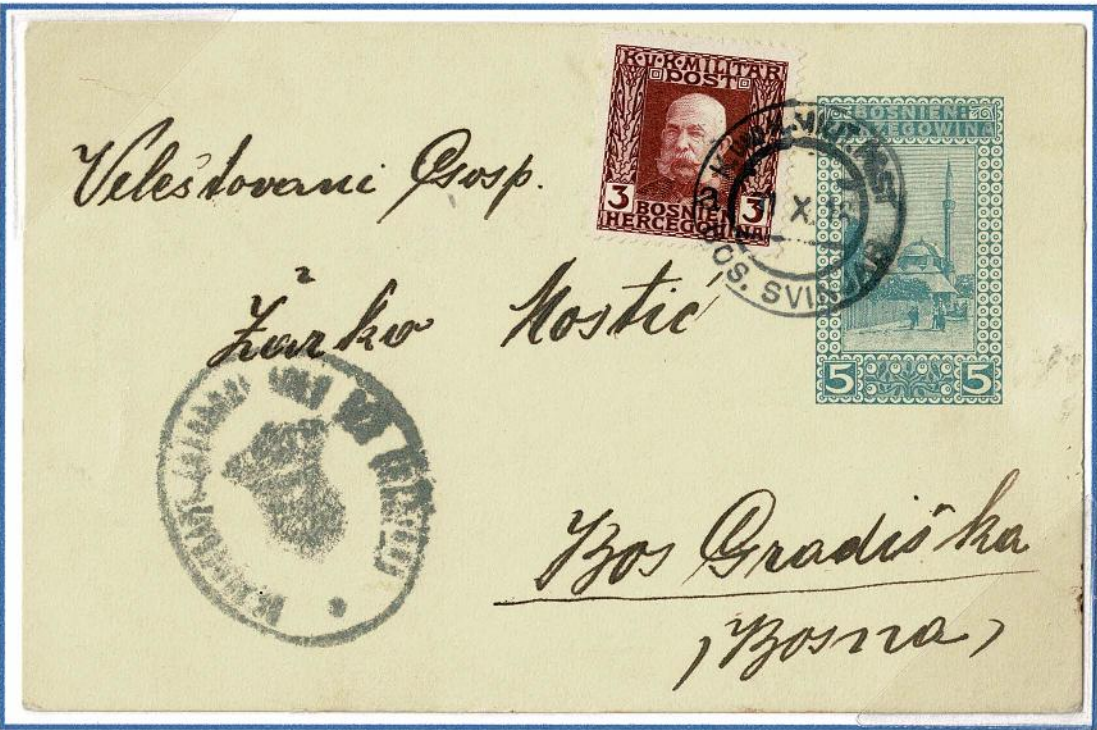 K.U.K. MILITÄR
POST
3 3
BOSNIEN
HERCEGOVINA
BOSNIEN
HERCEGOWINA
5 5
BOS. SVINJAR
X
Veleštovani Gosp.
Žarko Kostić
Bos Gradiška
(Bosna)